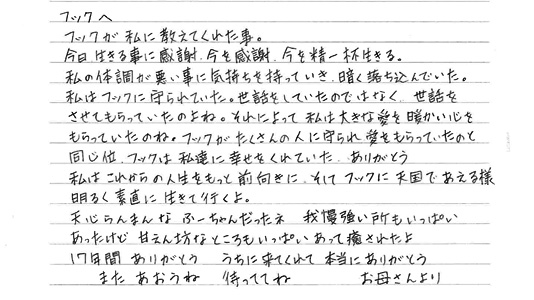 フックへ
フックが私に教えてくれた事。
今日生きる事に感謝、今を感謝、今を精一杯生きる。
私の体調が悪い事に気持ちを持っていき、暗く落ち込んでいた。
私はフックに守られていた。世話をしていたのではなく、世話を
させてもらっていたのよね。それによって私は大きな愛を暖かい心を
もらっていたのね。フックがたくさんの人に守られ愛をもらっていたのと
同じ位、フックは私達に幸せをくれていた、ありがとう
私はこれからの人生をもっと前向きに、そしてフックに天国であえる様
明るく素直に生きて行くよ。
天心らんまんなふーちゃんだったネ 我慢強い所もいっぱい
あったけど 甘えん坊なところもいっぱいあって癒されたよ
17年間ありがとう うちに来てくれて本当にありがとう
また あおうね 待っててね お母さんより